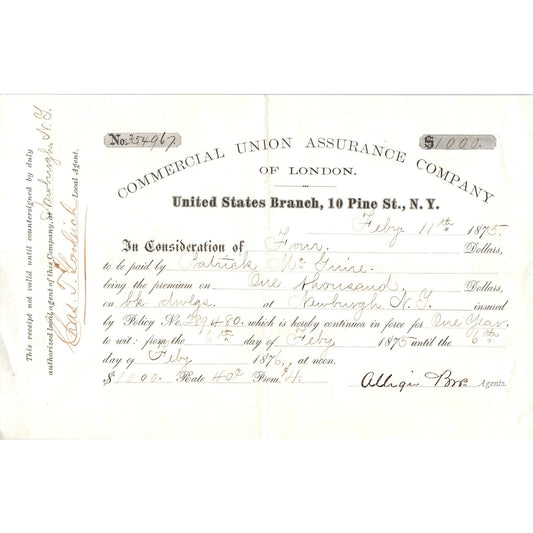 No. 354967
$1000.
COMMERCIAL UNION ASSURANCE COMPANY
OF LONDON.
United States Branch, 10 Pine St., N. Y.
Feby 11th 1875.
In Consideration of Four Dollars,
to be paid by Patrick Mc Guire.
being the premium on One thousand Dollars
on bk dwlgs. at Newburgh N. Y. insured
by Policy No. 289480. which is hereby continued in force for One Year.
to wit: from the 6th day of Feby 1875 until the 6th
day of Feby 1876, at noon.
$1000. Rate 40c Prem. $4. Agents.
This receipt not valid until countersigned by duly
authorized local agent of this Company, at Newburgh N. Y.
Chas. T. Goodrich Local Agent.